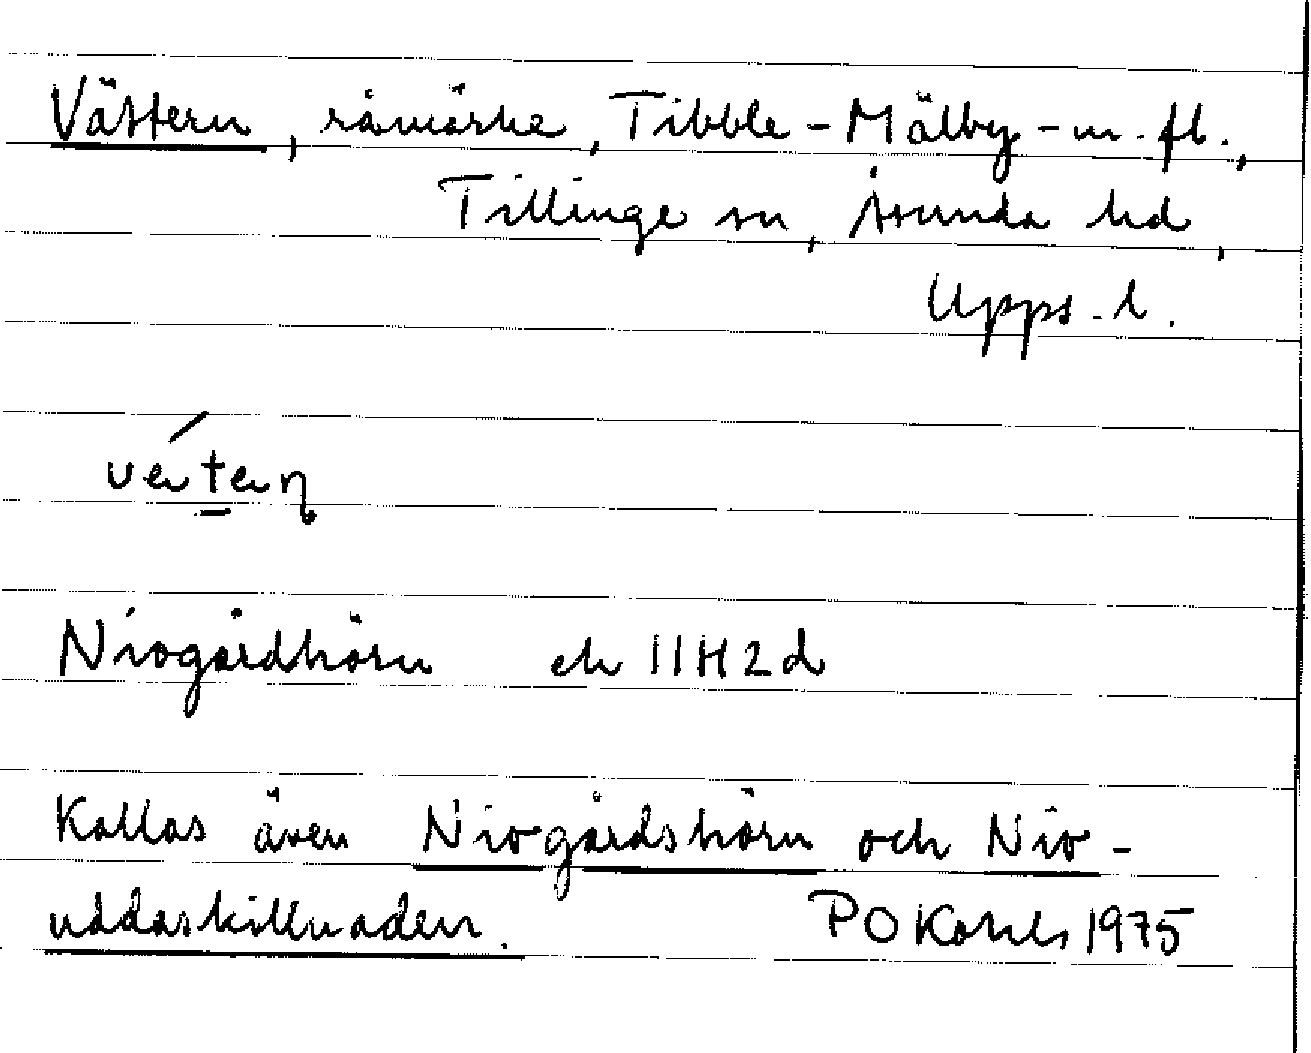 Vättern, råmärke, Tibble-Mälby-m.fl.,
Tillinge sn, Åsunda hd,
Upps. l.
Niogårdhörn ek 11H2d
Kallas även Niogårdshörn och Nio-
uddaskillnaden. PO 1975